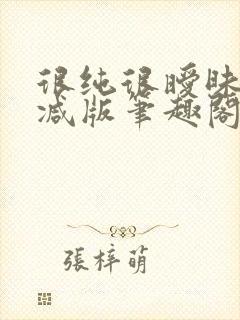 很纯很暧昧
减版笔趣阁
張梓萌